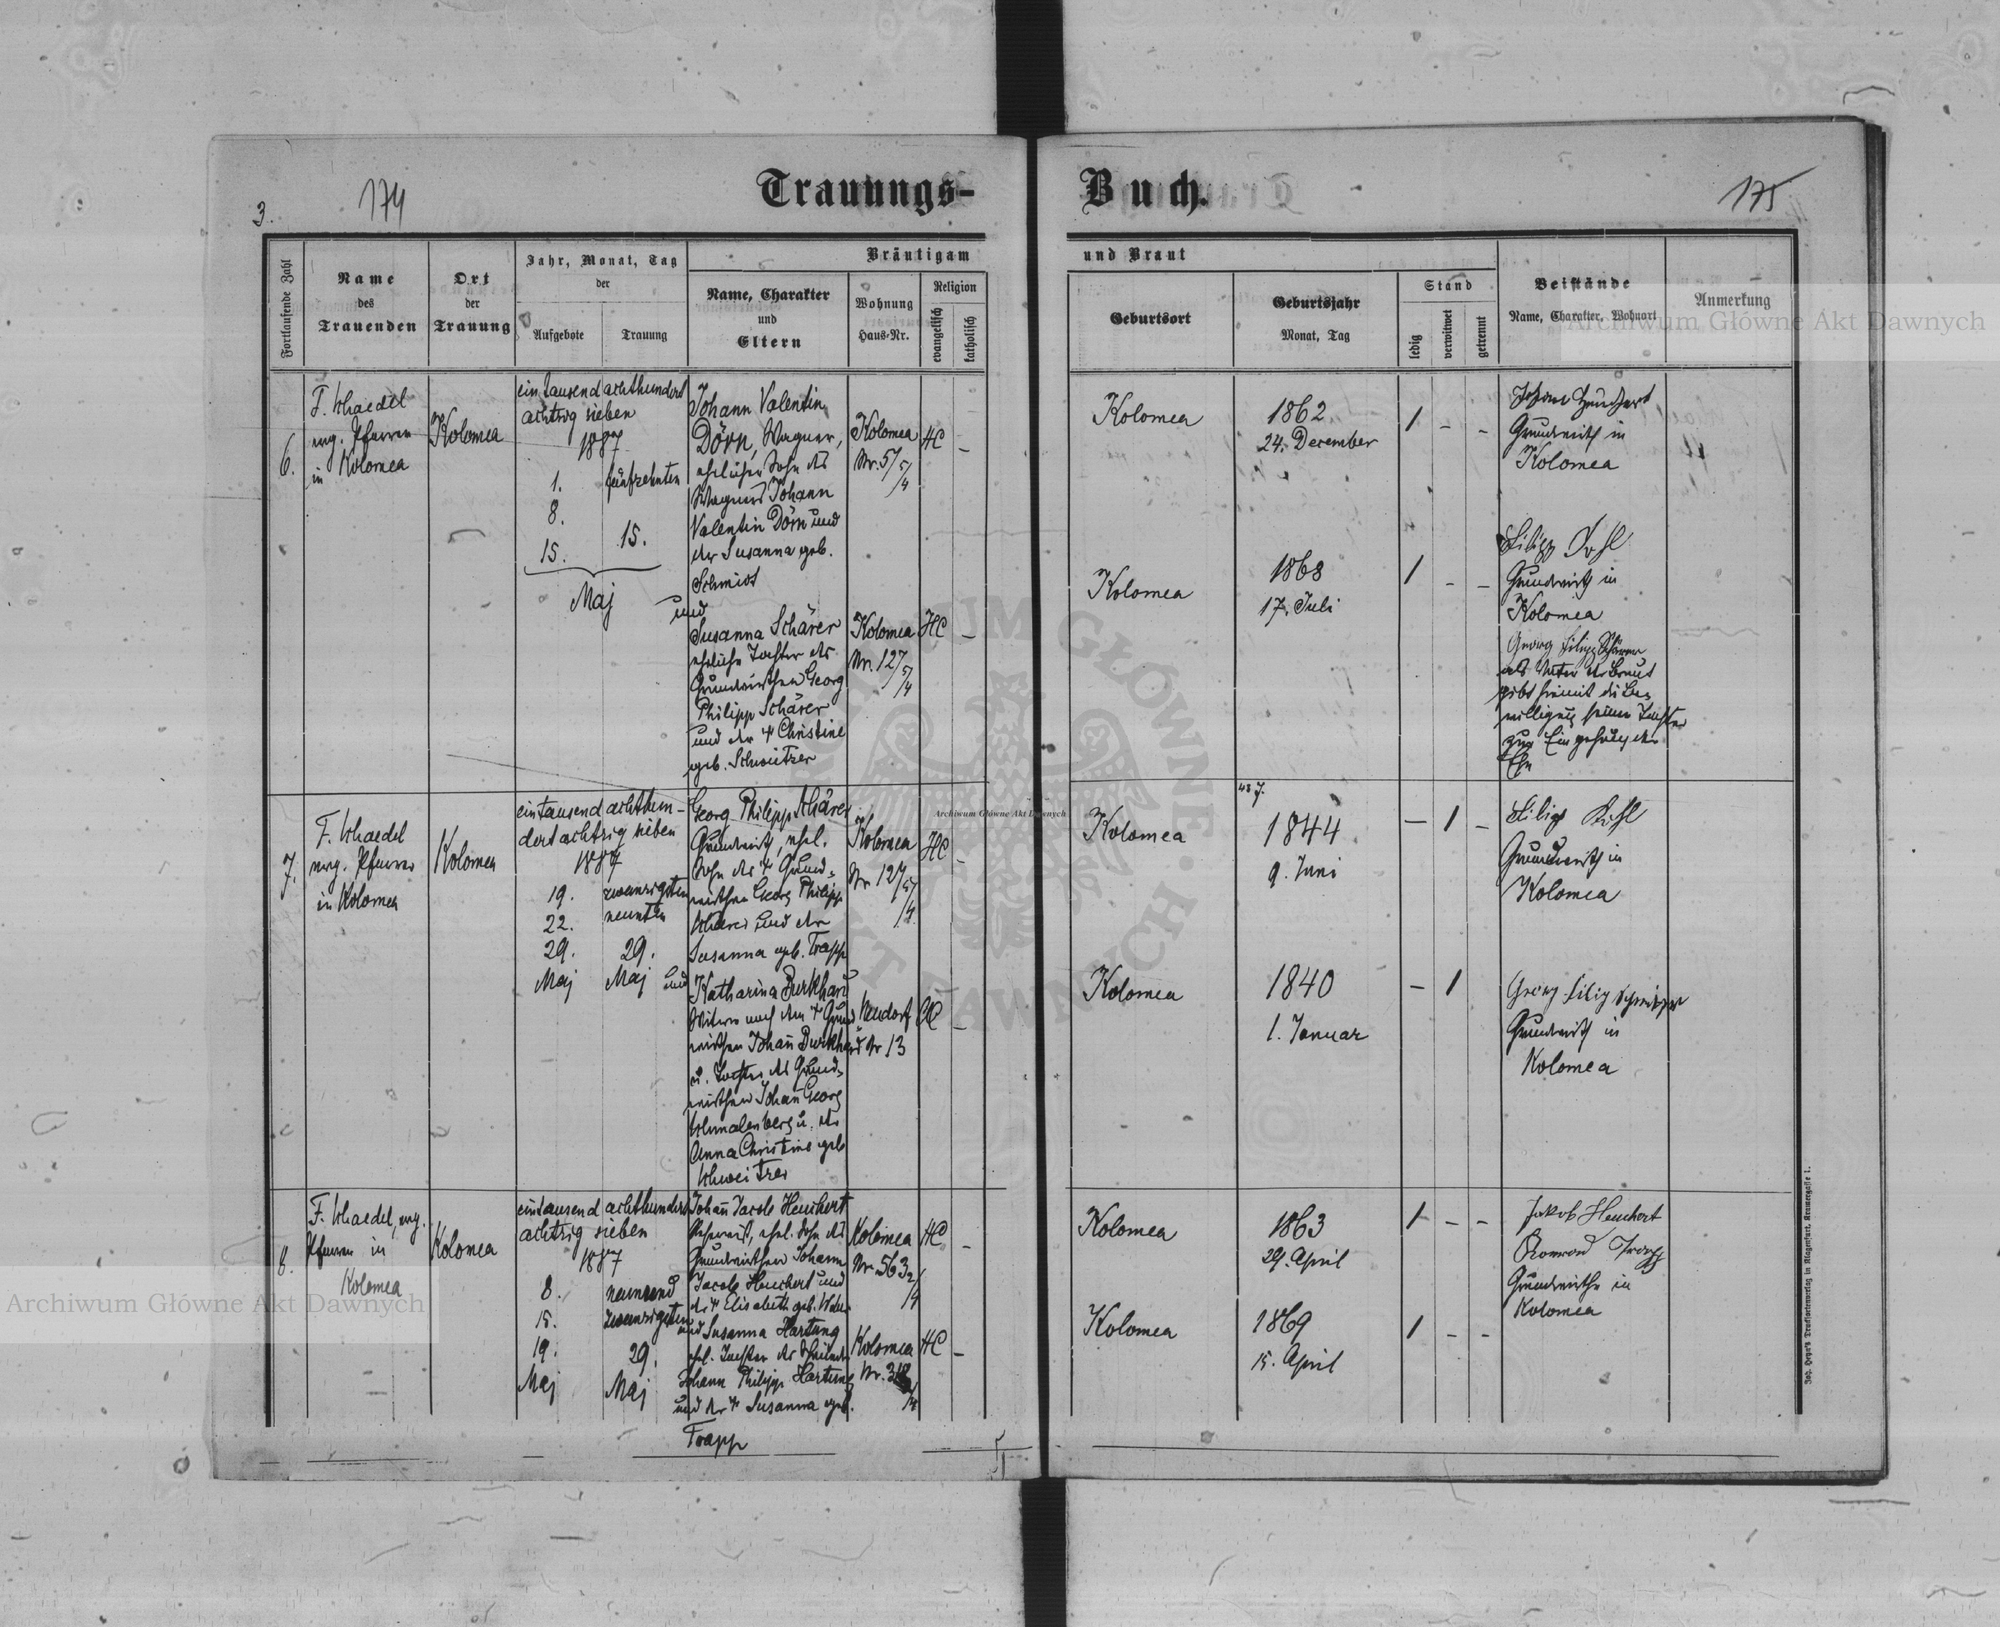 174
3.
Trauungs-
Fortlaufende Zahl
Name
des
Trauenden
Ort
der
Trauung
Jahr, Monat, Tag
der
Aufgebote
Trauung
Bräutigam
Name, Charakter
und
Eltern
Wohnung
Haus-Nr.
Religion
evangelisch
katholisch
6.
F. Schaedel
evg. Pfarrer
in Kolomea
Kolomea
ein tausend achthundert
achtzig sieben
1887
1. fünfzehnten
8.
15. 15.
Maj
Johann Valentin
Dörn, Wagner,
ehelicher Sohn des
Wagners Johann
Valentin Dörn und
der Susanna geb.
Schmidt
und
Susanna Schärer
eheliche Tochter des
Grundwirthen Georg
Philipp Schärer
und der † Christine
geb. Schweitzer
Kolomea
Nr. 57 5/4
HC -
Kolomea
Nr. 127 5/4
HC -
7.
F. Schaedel
evg. Pfarrer
in Kolomea
Kolomea
ein tausend achthun-
dert achtzig sieben
1887
19. zwanzigsten
22. neunten
29. 29.
Maj Maj
Georg Philipp Schärer
Grundwirth, ehel.
Sohn des † Grund-
wirthen Georg Philipp
Schärer und der
Susanna geb. Trapp
und
Katharina Burkhard
Witwe nach dem † Grund
wirthen Johañ Burkhard
u. Tochter des Grund-
wirthen Johañ Georg
Schmalenberg u. der
Anna Christine geb
Schweitzer
Kolomea
Nr 127 5/4
HC -
Neudorf
Nr 13
AC -
8.
F. Schaedel, evg.
Pfarrer in
Kolomea
Kolomea
ein tausend achthundert
achtzig sieben
1887
8. neunund
15. zwanzigsten
19. 29.
Maj Maj
Johañ Jacob Heuchert
ehel. Sohn des
Grundwirthen Johann
Jacob Heuchert und
der † Elisabeth geb. Weber
und Susanna Hartung
ehel. Tochter des
Johann Philipp Hartung
und der † Susanna geb.
Trapp
Kolomea
Nr. 563 2/4
HC -
Kolomea
HC -
Buch.
175
und Braut
Geburtsort
Geburtsjahr
Monat, Tag
Stand
ledig
verwitwet
getrennt
Beistände
Name, Charakter, Wohnort
Anmerkung
Kolomea
1862
24. December
1 - -
Johann Heuchert
Grundwirth in
Kolomea
Kolomea
1868
17. Juli
1 - -
Filipp Kohl
Grundwirth in
Kolomea
Georg Filipp Schärer
als Vater der Braut
gibt hiemit die Be-
willigung seiner Tochter
zur Eingehung der
Ehe
Kolomea
1844
9. Juni
- 1 -
Filip Kohl
Grundwirth in
Kolomea
Kolomea
1840
1. Januar
- 1
Georg Filip Schweitzer
Grundwirth in
Kolomea
Kolomea
1863
29. April
1 - -
Jakob Heuchert
Konrad Trapp
Grundwirthe in
Kolomea
Kolomea
1869
15. April
1 - -
Joh. Heyn's Drucksortenverlag in Klagenfurt, Kramergasse 1.
Archiwum Główne Akt Dawnych
Archiwum Główne Akt Dawnych
Archiwum Główne Akt Dawnych
ARCHIWUM GŁÓWNE AKT DAWNYCH